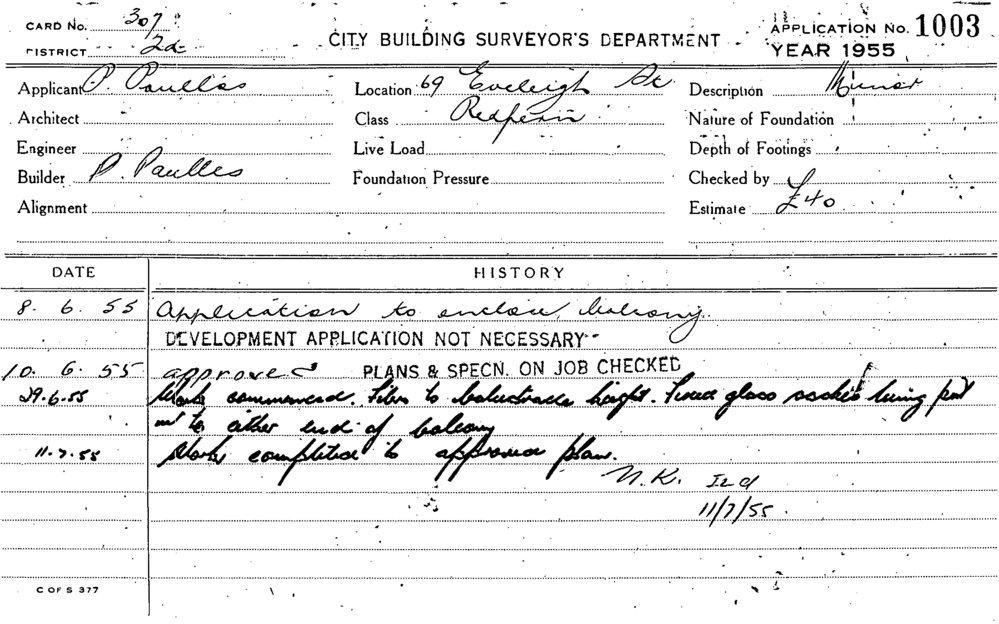 CARD No. 307
DISTRICT 2d
CITY BUILDING SURVEYOR'S DEPARTMENT
APPLICATION No. 1003
YEAR 1955
Applicant P. Paulles
Location 69 Eveleigh St
Description Minor
Architect
Class Redfern
Nature of Foundation
Engineer
Live Load
Depth of Footings
Builder P. Paulles
Foundation Pressure
Checked by
Alignment
Estimate £40
DATE HISTORY
8. 6. 55 Application to enclose balcony.
DEVELOPMENT APPLICATION NOT NECESSARY
10. 6. 55 approved PLANS & SPECN. ON JOB CHECKED
29.6.55 Work commenced. Fibro to balustrade height. Fixed glass sashes being put
in to either end of balcony
11.7.55 Work completed to approved plan.
N.K.
11/7/55.
C OF S 377